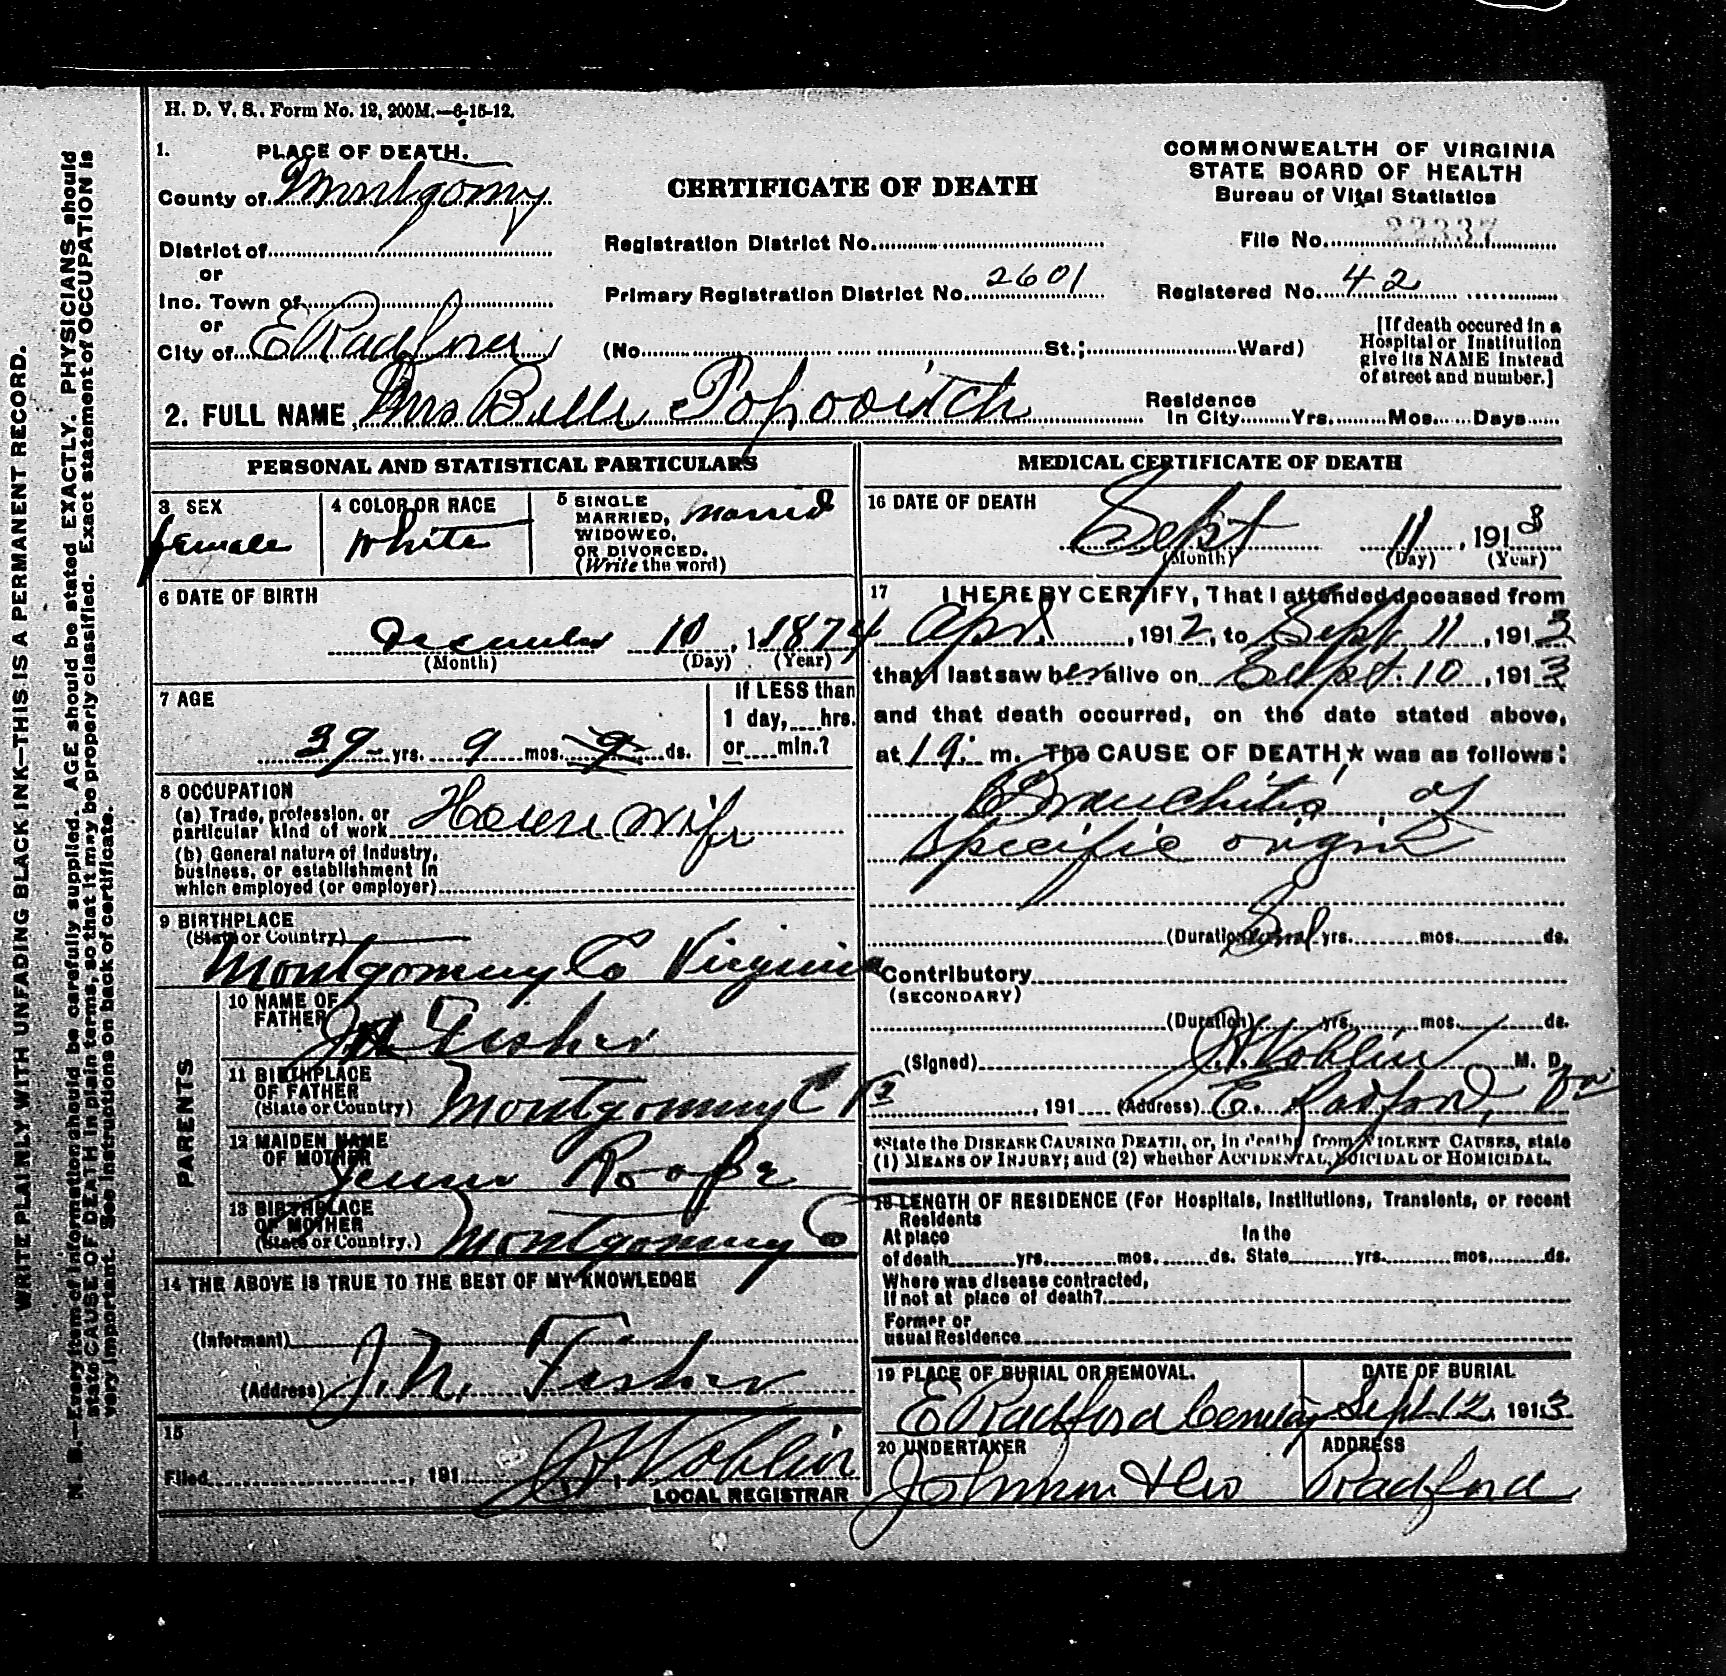 H. D. V. S.. Form No. 12, 200M.—6-15-12.
1. PLACE OF DEATH.
County of Montgomy
District of
or
Inc. Town of
or
City of E Radford
CERTIFICATE OF DEATH
Registration District No.
Primary Registration District No. 2601
(No. St.; Ward)
COMMONWEALTH OF VIRGINIA
STATE BOARD OF HEALTH
Bureau of Vital Statistics
File No. 22337
Registered No. 42
[If death occured in a
Hospital or Institution
give its NAME instead
of street and number.]
2. FULL NAME Mrs Belle Popovitch
Residence
In City Yrs. Mos. Days
PERSONAL AND STATISTICAL PARTICULARS
3 SEX
female
4 COLOR OR RACE
White
5 SINGLE
MARRIED,
WIDOWED,
OR DIVORCED.
(Write the word)
Married
6 DATE OF BIRTH
December 10, 1 1874
(Month) (Day) (Year)
7 AGE
39 yrs. 9 mos. 9 ds.
If LESS than
1 day, hrs.
or min.?
8 OCCUPATION
(a) Trade, profession. or
particular kind of work House wife
(b) General nature of Industry,
business, or establishment in
which employed (or employer)
9 BIRTHPLACE
(State or Country)
Montgomery Co Virginia
PARENTS
10 NAME OF
FATHER J N Fisher
11 BIRTHPLACE
OF FATHER
(State or Country) Montgomery C Va
12 MAIDEN NAME
OF MOTHER
13 BIRTHPLACE
OF MOTHER
(State or Country.) Montgomery Co
14 THE ABOVE IS TRUE TO THE BEST OF MY KNOWLEDGE
(Informant)
(Address) J. N. Fisher
15
Filed , 191
LOCAL REGISTRAR
MEDICAL CERTIFICATE OF DEATH
16 DATE OF DEATH
Sept 11, 1913
(Month) (Day) (Year)
17 I HEREBY CERTIFY, That I attended deceased from
Apr. , 1912, to Sept 11, 1913
that I last saw her alive on Sept. 10, 1913
and that death occurred, on the date stated above,
at m. The CAUSE OF DEATH★ was as follows:
Bronchitis of
specific origin
(Duration) yrs. mos. ds.
Contributory
(SECONDARY)
(Duration) yrs. mos. ds.
(Signed) M. D.
, 191 (Address) E. Radford, Va
*State the DISEASE CAUSING DEATH, or, in deaths from VIOLENT CAUSES, state
(1) MEANS OF INJURY; and (2) whether ACCIDENTAL, SUICIDAL or HOMICIDAL.
18 LENGTH OF RESIDENCE (For Hospitals, Institutions, Transients, or recent
Residents
At place In the
of death yrs. mos. ds. State yrs. mos. ds.
Where was disease contracted,
If not at place of death?
Former or
usual Residence
19 PLACE OF BURIAL OR REMOVAL. DATE OF BURIAL
E Radford Cemetery Sept 12, 1913
20 UNDERTAKER ADDRESS
Johnson & Co Radford
WRITE PLAINLY WITH UNFADING BLACK INK—THIS IS A PERMANENT RECORD.
N. B.—Every item of information should be carefully supplied. AGE should be stated EXACTLY. PHYSICIANS should
state CAUSE OF DEATH in plain terms, so that it may be properly classified. Exact statement of OCCUPATION is
very important. See instructions on back of certificate.